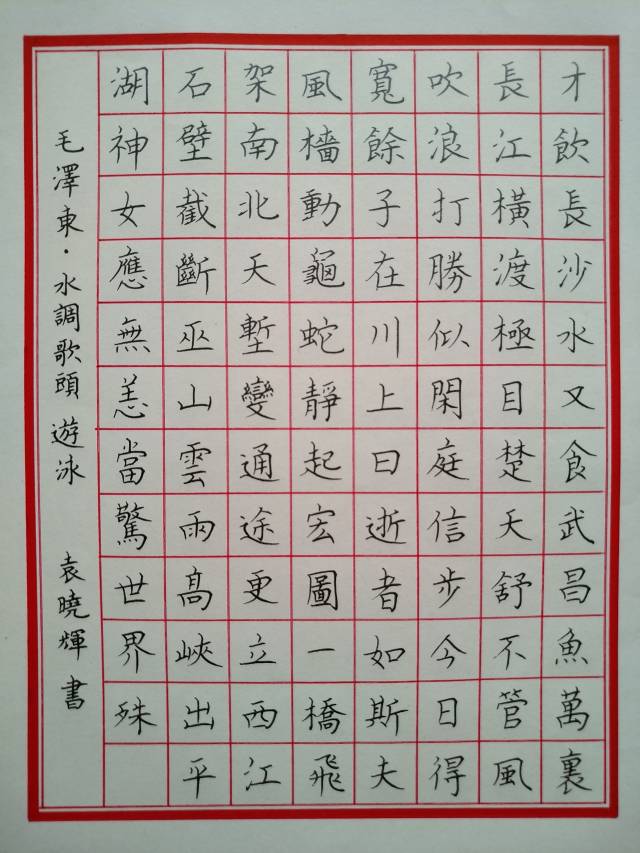 才飲長沙水又食武昌魚萬裏
長江橫渡極目楚天舒不管風
吹浪打勝似閑庭信步今日得
寬餘子在川上曰逝者如斯夫
風檣動龜蛇靜起宏圖一橋飛
架南北天塹變通途更立西江
石壁截斷巫山雲雨高峽出平
湖神女應無恙當驚世界殊
毛澤東·水調歌頭 遊泳 袁曉輝書